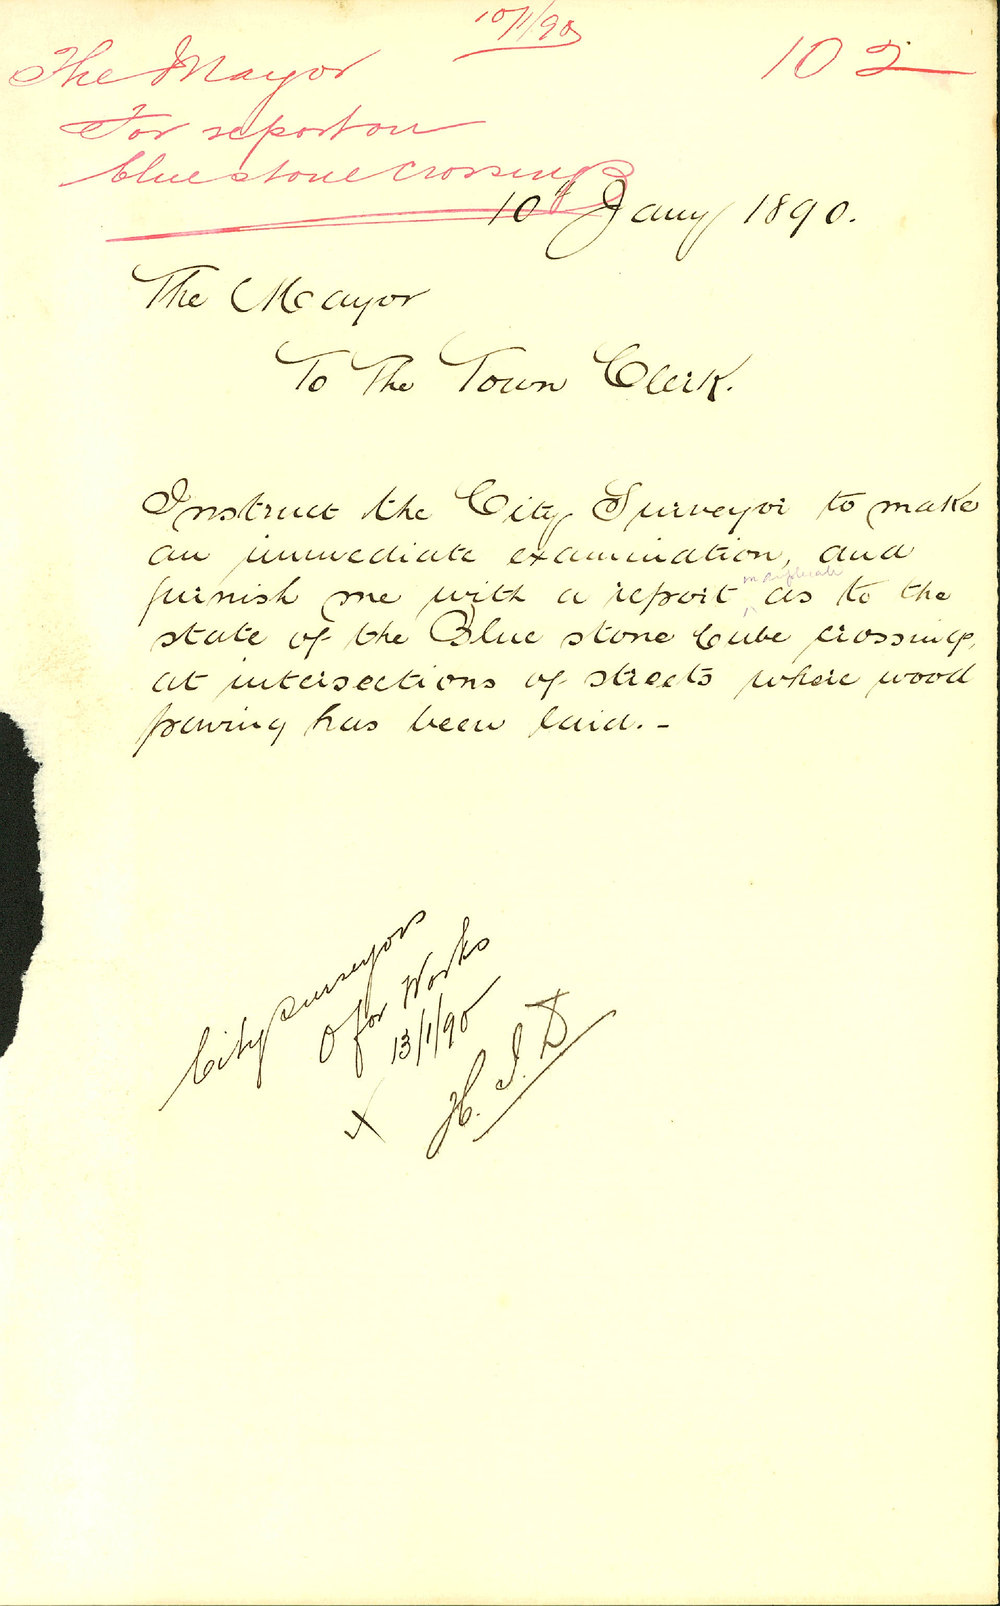 10/1/90
102
The Mayor
For report on
bluestone crossings
10th Jany 1890.
The Mayor
To The Town Clerk.
Instruct the City Surveyor to make
an immediate examination, and
furnish me with a report in duplicate as to the
state of the Blue stone Cube crossings,
at intersections of streets where wood
paving has been laid. -
City Surveyors
O for Works
13/1/90
X H. J. D